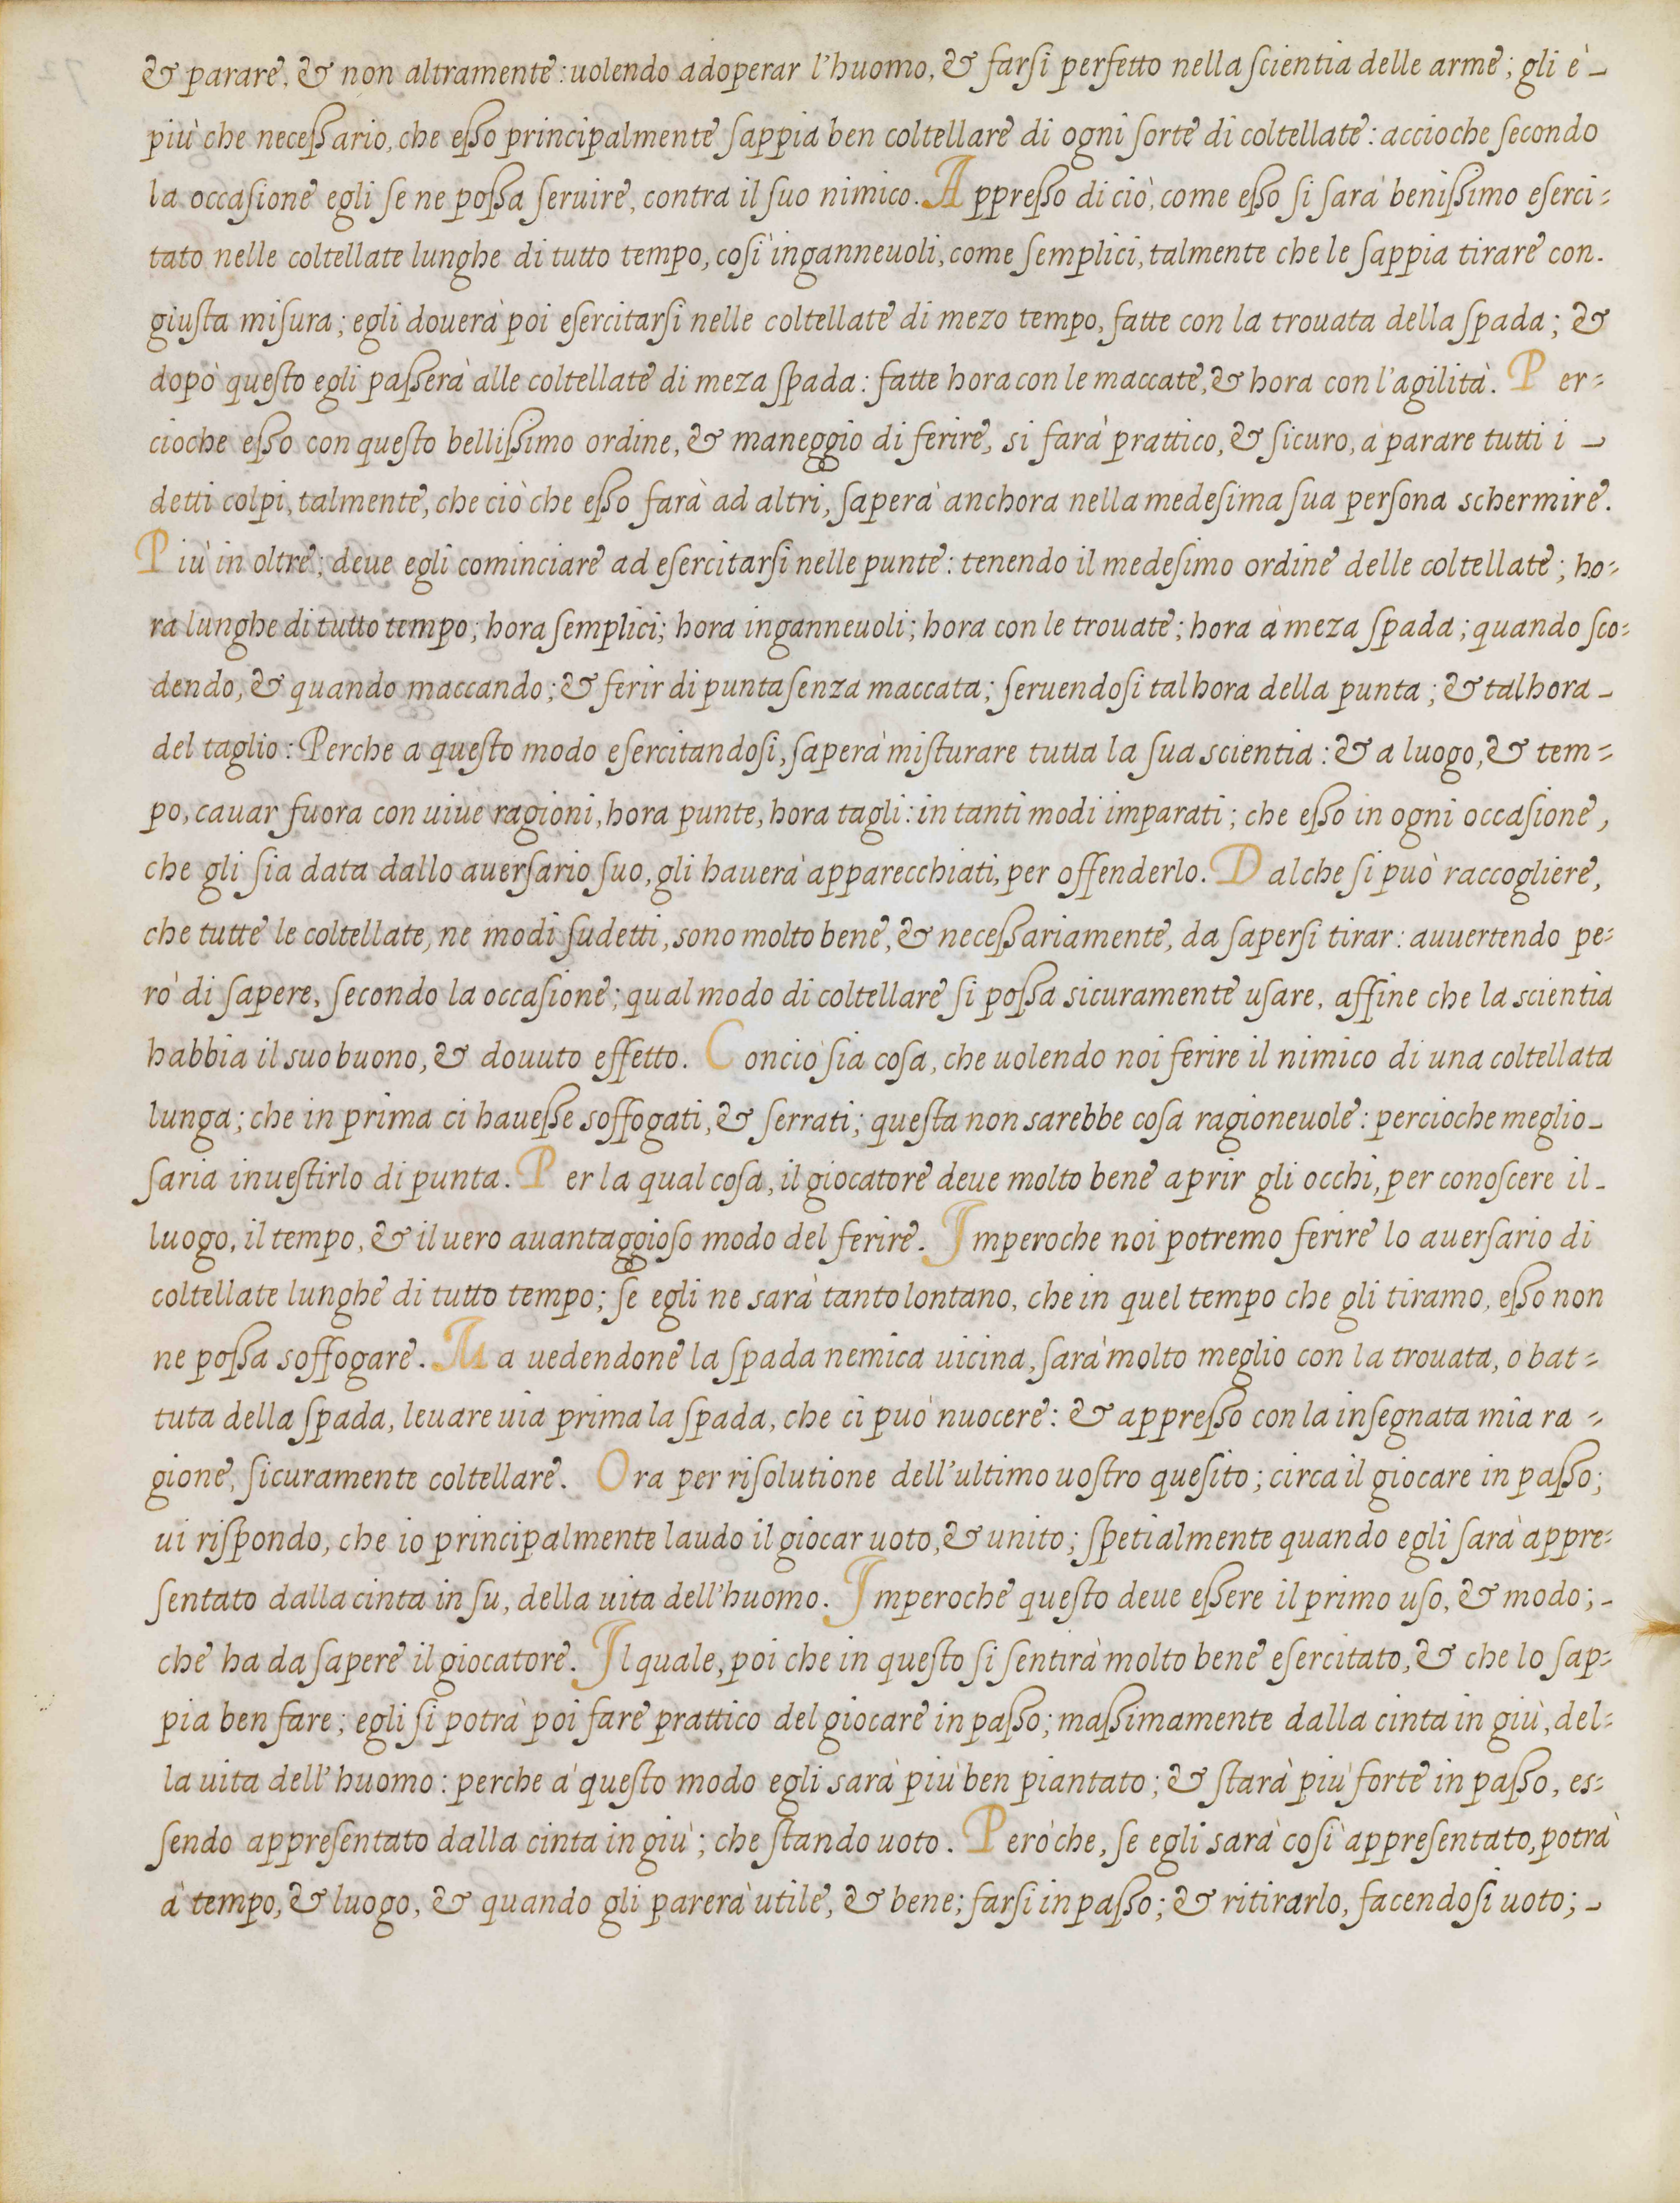 & parare, & non altramente: uolendo adoperar l'huomo, & farſi perfetto nella ſcientia delle arme; gli è
più che neceßario, che eßo principalmente ſappia ben coltellare di ogni ſorte di coltellate: accioche ſecondo
la occaſione egli ſe ne poßa ſeruire, contra il ſuo nimico. Appreßo di ciò, come eßo ſi ſarà benißimo eſerci-
tato nelle coltellate lunghe di tutto tempo, coſì inganneuoli, come ſemplici, talmente che le ſappia tirare con
giuſta miſura; egli douerà poi eſercitarſi nelle coltellate di mezo tempo, fatte con la trouata della ſpada; &
dopò queſto egli paßerà alle coltellate di meza ſpada: fatte hora con le maccate, & hora con l'agilità. Per-
cioche eßo con queſto bellißimo ordine, & maneggio di ferire, si farà prattico, & ſicuro, à parare tutti i
detti colpi, talmente, che ciò che eßo farà ad altri, ſaperà anchora nella medeſima ſua perſona schermire.
Più in oltre; deue egli cominciare ad eſercitarſi nelle punte: tenendo il medeſimo ordine delle coltellate; ho-
ra lunghe di tutto tempo; hora ſemplici; hora inganneuoli; hora con le trouate; hora à meza ſpada; quando ſco-
dendo, & quando maccando; & ferir di punta ſenza maccata; ſeruendoſi tal hora della punta; & tal hora
del taglio: Perche a queſto modo eſercitandoſi, ſaperà miſturare tutta la ſua scientia: & a luogo, & tem-
po, cauar fuora con uiue ragioni, hora punte, hora tagli: in tanti modi imparati; che eßo in ogni occaſione,
che gli ſia data dallo auerſario ſuo, gli hauerà apparecchiati, per offenderlo. Dal che ſi può raccogliere,
che tutte le coltellate, ne modi ſudetti, sono molto bene, & neceßariamente, da ſaperſi tirar: auuertendo pe-
rò di ſapere, ſecondo la occaſione; qual modo di coltellare ſi poßa sicuramente uſare, affine che la scientia
habbia il suo buono, & douuto effetto. Conciò ſia coſa, che uolendo noi ferire il nimico di una coltellata
lunga; che in prima ci haueße soffogati, & ſerrati; queſta non sarebbe coſa ragioneuole: percioche meglio
ſaria inueſtirlo di punta. Per la qual coſa, il giocatore deue molto bene aprir gli occhi, per conoſcere il
luogo, il tempo, & il uero auantaggioſo modo del ferire. Imperoche noi potremo ferire lo auerſario di
coltellate lunghe di tutto tempo; ſe egli ne sarà tanto lontano, che in quel tempo che gli tiramo, eßo non
ne poßa soffogare. Ma uedendone la ſpada nemica uicina, ſarà molto meglio con la trouata, o bat-
tuta della ſpada, leuare uia prima la ſpada, che ci può nuocere: & appreßo con la inſegnata mia ra-
gione, ſicuramente coltellare. Ora per riſolutione dell'ultimo uoſtro queſito; circa il giocare in paßo;
ui riſpondo, che io principalmente laudo il giocar uoto, & unito; ſpetialmente quando egli ſarà appre-
ſentato dalla cinta in ſu, della uita dell'huomo. Imperoche queſto deue eßere il primo uſo, & modo;
che ha da ſapere il giocatore. Il quale, poi che in queſto ſi ſentirà molto bene eſercitato, & che lo ſap-
pia ben fare; egli ſi potrà poi fare prattico del giocare in paßo; maßimamente dalla cinta in giù, del-
la uita dell'huomo: perche à queſto modo egli sarà più ben piantato; & ſtarà più forte in paßo, es-
ſendo appreſentato dalla cinta in giù; che ſtando uoto. Però che, ſe egli sarà coſì appreſentato, potrà
à tempo, & luogo, & quando gli parerà utile, & bene; farſi in paßo; & ritirarlo, facendoſi uoto;